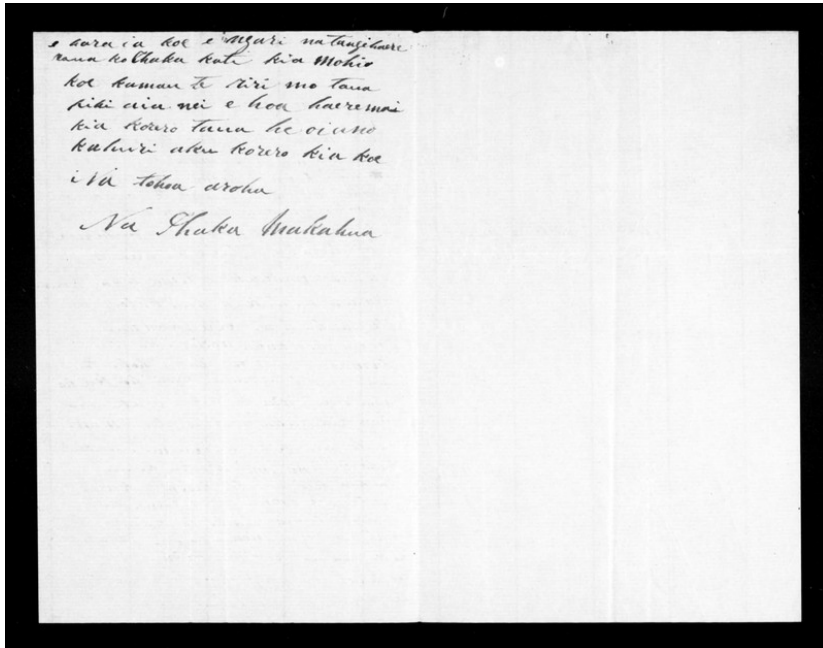 e aara ia koe e nguri na tangihaere
raua ko Ihaka kati kia Mohio
koe kamau te riri mo taua
piki aia nei e hoa haeremai
kia korero taua he oiano
kahuiri aku korero kia koe
i Na tohoa aroha
Na Ihaka Makahua